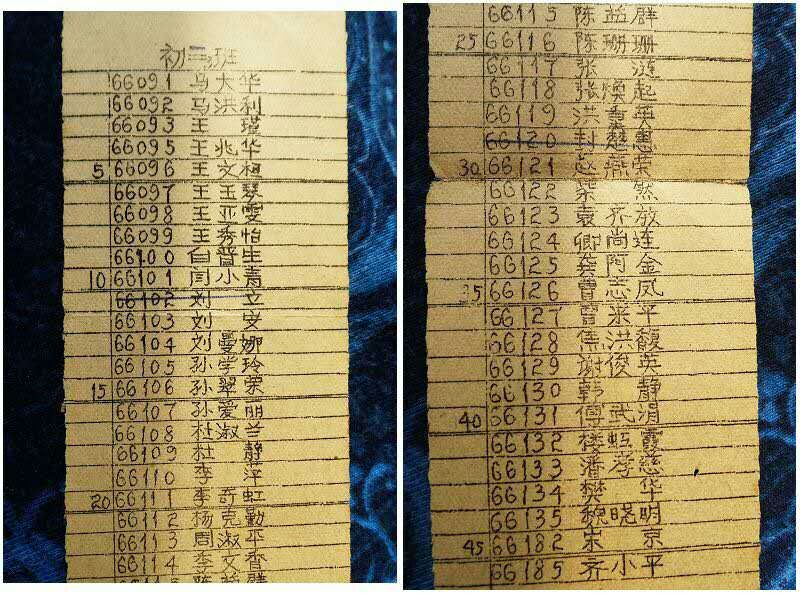 初三班
66091 马大华
66092 马洪利
66093 王 瑾
66095 王兆华
5 66096 王文桓
66097 王玉琴
66098 王亚雯
66099 王秀怡
66100 白晋生
10 66101 闫小青
66102 刘 立
66103 刘 安
66104 刘曼娜
66105 孙学玲
15 66106 孙翠荣
66107 孙爱丽
66108 杜淑兰
66109 杜 静
66110 李 萍
20 66111 李奇虹
66112 杨克勤
66113 周淑平
66114 李文香
陈益群
66115 陈益群
25 66116 陈珊珊
66117 张 涟
66118 张焕起
66119 洪 英
66120 封楚惠
30 66121 赵燕荣
66122 柴 然
66123 袁齐放
66124 卿尚连
66125 龚阿金
35 66126 曹志凤
66127 曹来平
66128 傅洪馥
66129 谢俊英
66130 韩 静
40 66131 傅武涓
66132 楼虹霞
66133 潘孝慈
66134 樊 华
66135 魏曙明
45 66182 宋 京
66185 齐小平